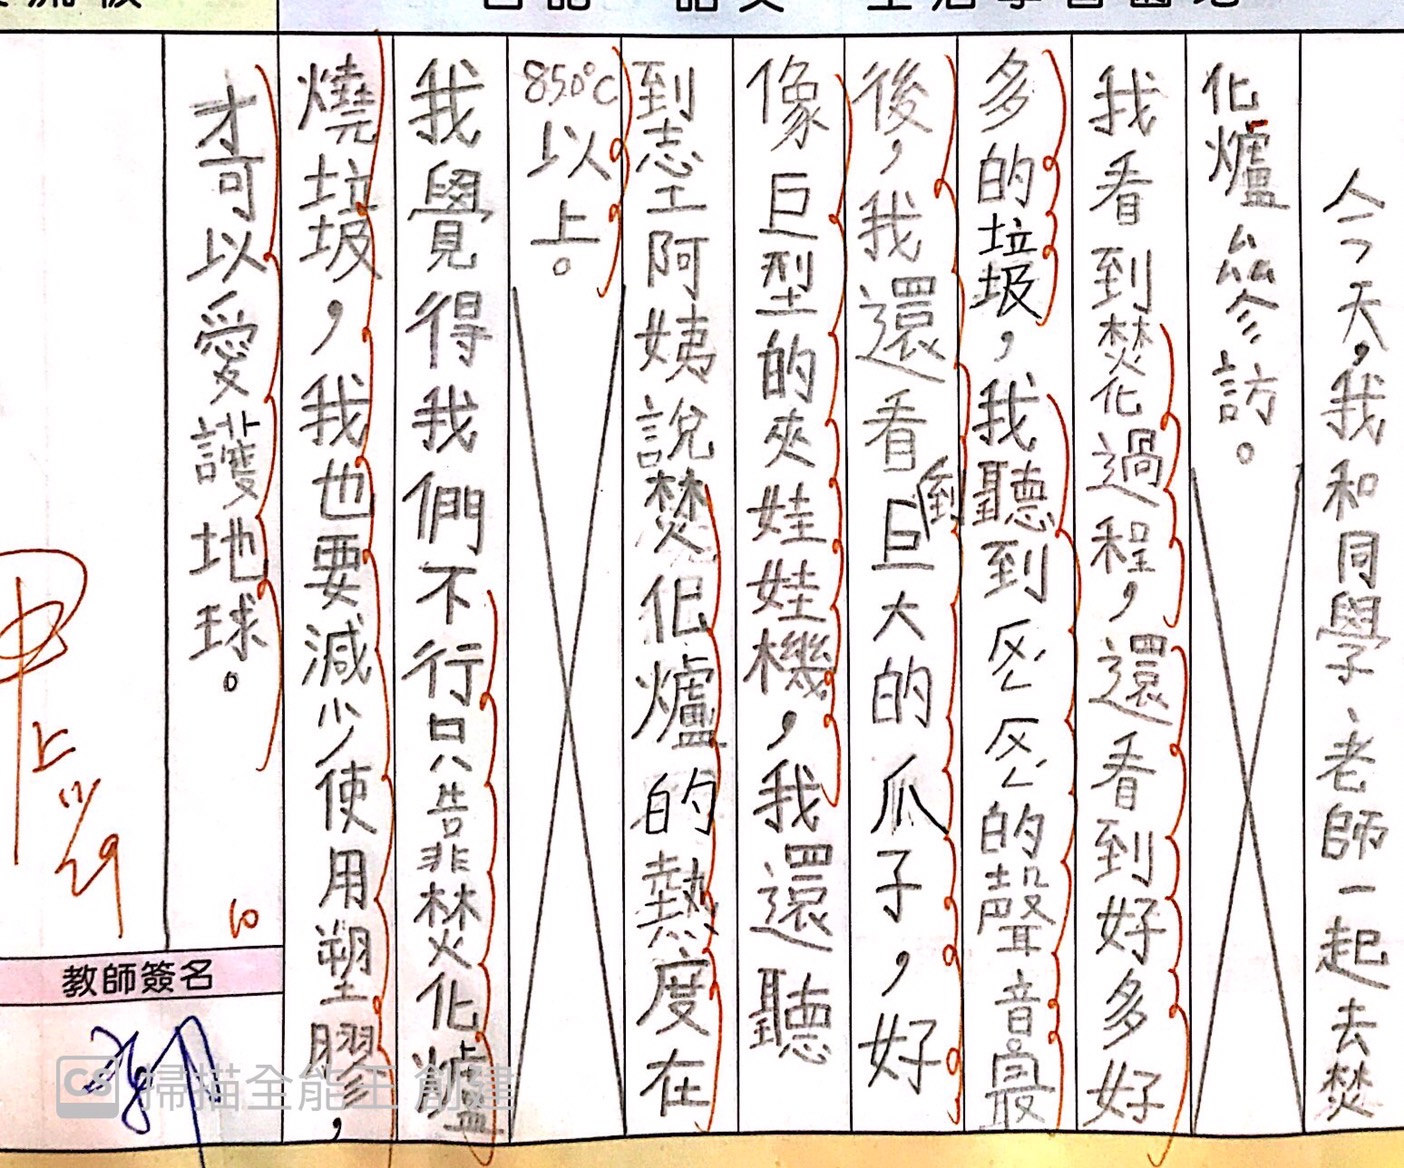 今天，我和同學、老師一起去焚
化爐參訪。
我看到焚化過程，還看到好多好
多的垃圾，我聽到ㄆㄥㄆㄥ的聲音。最
後，我還看到巨大的爪子，好
像巨型的夾娃娃機，我還聽
到志工阿姨說焚化爐的熱度在
850°C以上。
我覺得我們不行只告非焚化爐
燒垃圾，我也要減少使用塑膠，
才可以愛護地球。
10
甲上
教師簽名
CS 掃描全能王 創建